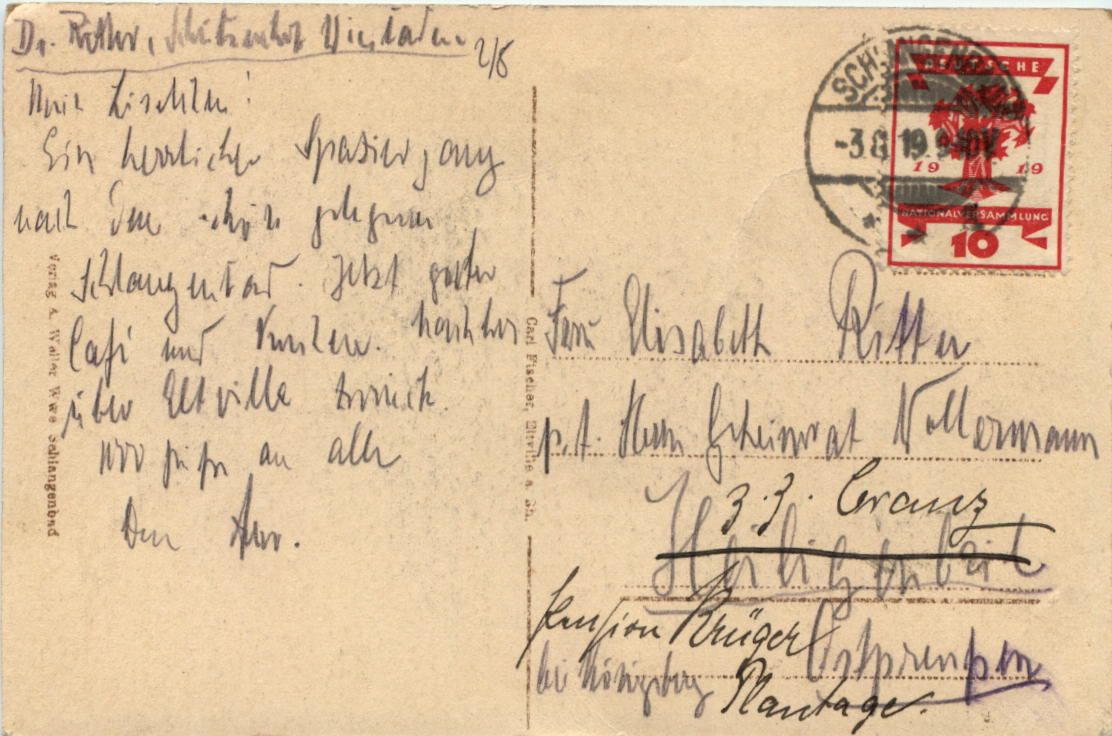 Dr. Ritter, Schützenhof Wiesbaden 2/8
Mein Lieschen!
Ein herrlicher Spaziergang
nach dem schön gelegenen
Schlangenbad. Jetzt guter
Café und Kuchen. Nachher
über Eltville zurück.
an alle
Dein
Verlag A. Weller Wwe Schlangenbad
Carl Fischer, Eltville a. Rh.
SCHLANGENBAD
-3.8.19.9-10V
DEUTSCHE
1919
NATIONALVERSAMMLUNG
10
Frau Elisabeth Ritter
p.A. Herrn Geheimrat Vollermann
z.Z. Cranz
Heiligenbeil
Pension Krüger
Ostpreußen
bei Königsberg Plantage.